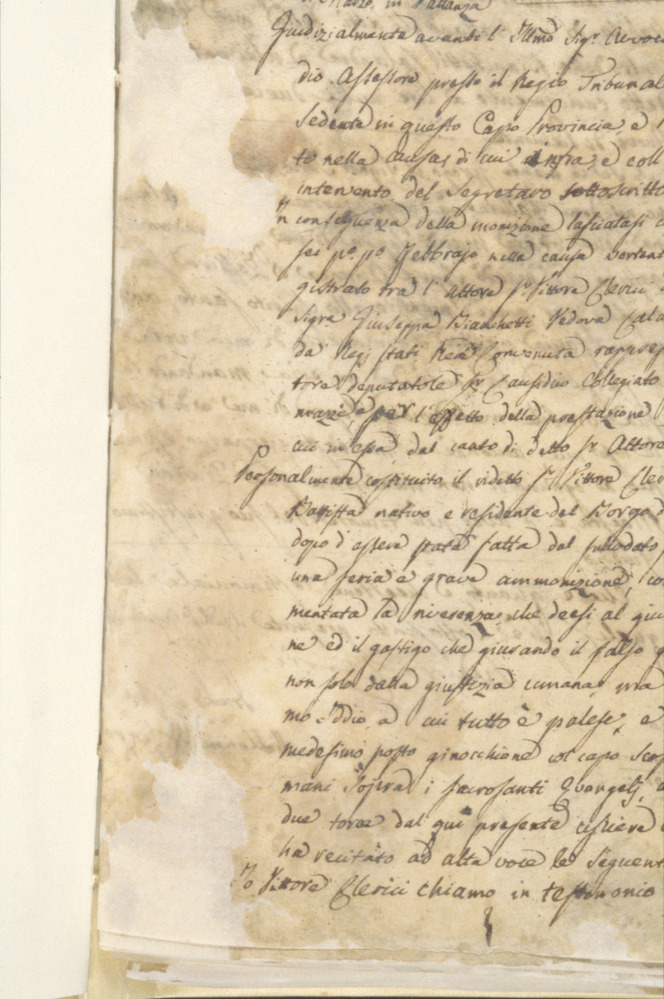 di Marzo, in Pallanza
Giudizialmente avanti l' Illmo Sigr. Avvoc
dio Assessore presso il Regio Tribunal
Sedente in questo Capo Provincia, e
to nella Causa, di cui infra, e coll
intervento del Segretaro sottoscritto
In conseguenza della monizione lasciatasi
sei po. po. Febbrajo nella causa vertent
gistrato tra l' Attore Sr. Vittore Clerici
Sigra. Giuseppa Bianchetti Vedova Cala
da Regj Stati Rea Convenuta rappres
tore deputatole Sr. Causidico Collegiato
e per l' effetto della prestazione
cui in essa dal canto di detto Sr. Attore
Personalmente costituito il videtto Sr. Vittore Cler
Battista nativo e residente del Borgo d
dopo d' essere stata fatta dal sullodato
una seria e grave ammonizione, co
mentata la riverenza, che deesi al giu
ne ed il gastigo che giurando il falso
non solo dalla giustizia umana, ma
mo Iddio, a cui tutto è palese, e
medesimo posto ginocchione col capo Scop
mani sopra i sacrosanti Evangelj,
due torce dal qui presente usciere
ha recitato ad alta voce le seguent
Io Vittore Clerici chiamo in testimonio